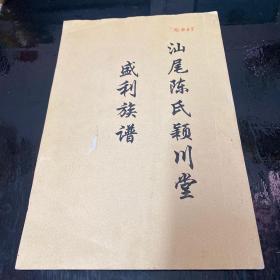 汕尾陈氏颖川堂
盛利族谱